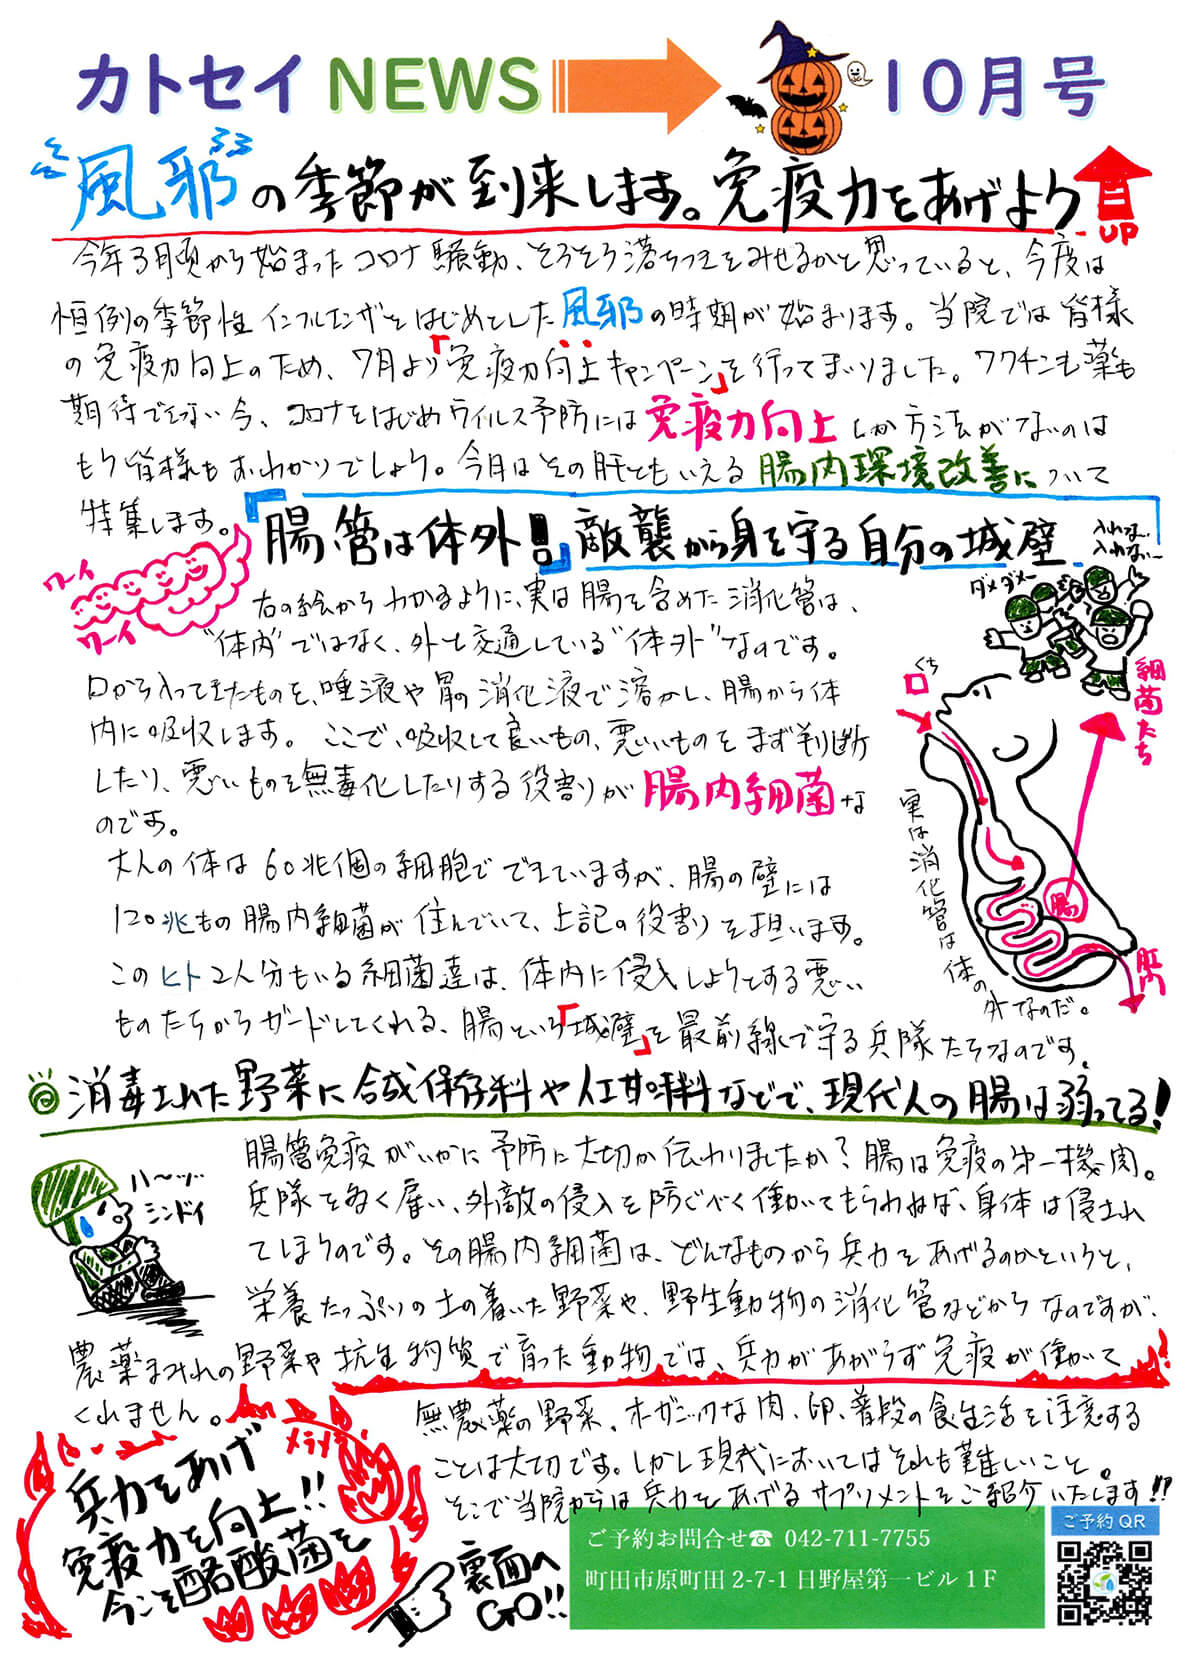 カトセイ NEWS 10月号
風邪の季節が到来します。免疫力をあげよう UP
今年3月頃から始まったコロナ騒動、そろそろ落ちつきをみせるかと思っていると、今度は
恒例の季節性インフルエンザをはじめとした風邪の時期が始まります。当院では皆様
の免疫力向上のため、7月より「免疫力向上キャンペーン」を行ってまいりました。ワクチンも薬も
期待できない今、コロナをはじめウイルス予防には免疫力向上しか方法がないのは
もう皆様もおわかりでしょう。今月はその肝ともいえる腸内環境改善について
特集します。
「腸管は体外!」敵襲から身を守る自分の城壁
ワーイ
ワーイ
入れな、
入れない〜
ダメダメー
右の絵からわかるように、実は腸を含めた消化管は、
"体内"ではなく、外と交通している"体外"なのです。
口から入ってきたものを、唾液や胃の消化液で溶かし、腸から体
内に吸収します。ここで、吸収して良いもの、悪いものをまず判断
したり、悪いものを無毒化したりする役割が腸内細菌な
のです。
くち
口
細菌たち
腸
肛門
実は消化管は体の外なのだ。
大人の体は60兆個の細胞でできていますが、腸の壁には
120兆もの腸内細菌が住んでいて、上記の役割を担います。
このヒト2人分もいる細菌達は、体内に侵入しようとする悪い
ものたちからガードしてくれる、腸という「城壁」を最前線で守る兵隊たちなのです。
◎消毒された野菜に合成保存料や人工甘味料などで、現代人の腸は弱ってる!
ハ〜ッ…
シンドイ
腸管免疫がいかに予防に大切か伝わりましたか?腸は免疫の第一機関。
兵隊を多く雇い、外敵の侵入を防ぐべく働いてもらわねば、身体は侵され
てしまうのです。その腸内細菌は、どんなものから兵力をあげるのかというと、
栄養たっぷりの土の着いた野菜や、野生動物の消化管などからなのですが、
農薬まみれの野菜や抗生物質で育った動物では、兵力があがらず免疫が働いて
くれません。
無農薬の野菜、オーガニックな肉、卵、普段の食生活を注意する
ことは大切です。しかし現代においてはそれも難しいこと。
そこで当院からは兵力をあげるサプリメントをご紹介いたします!!
メラメラ
兵力をあげ
免疫力を向上!!
今こそ酪酸菌を
裏面へ
GO!!
ご予約お問合せ☎ 042-711-7755
町田市原町田 2-7-1 日野屋第一ビル 1F
ご予約 QR